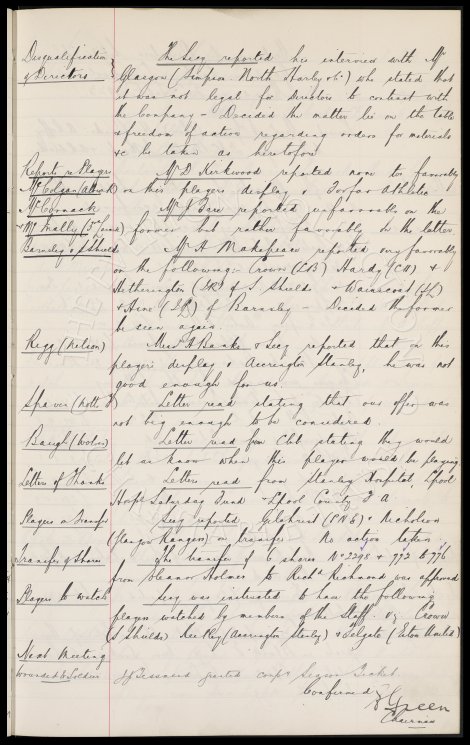 Disqualification The Secy reported his interview with Mr
of Directors Glasgow (Simpson North Harley &c) who stated that
it was not legal for Directors to contract with
the Company - Decided the matter lie on the table
& freedom of action regarding orders for materials
&c be taken as heretofore
Reports re Players Mr D. Kirkwood reported non too favorably
on this players display v Forfar Athletic
McCormack Mr J Frew reported unfavorably on the
& McNally former but rather favorably on the latter
Barnsley v S Shields Mr A Makepeace reported very favorably
on the following: Crown (LB) Hardy (CH) &
Hetherington (IR) of S. Shields & Wainscoat (IL)
& Hine (IR) of Barnsley - Decided the former
be seen again.
Regg (Nelson) Messrs A Banks & Secy reported that on this
players display v Accrington Stanley, he was not
good enough for us.
Spaven (Notts F) Letter read stating that our offer was
not big enough to be considered.
Baugh (Wolves) Letter read from Club stating they would
let us know when this player would be playing
Letters of Thanks Letters read from Stanley Hospital, Lpool
Hospl Saturday Fund & Lpool County F A
Players on Transfer Secy reported Gilchrist (P.N.E) & Nicholson
(Glasgow Rangers) on transfer - No action taken
Transfer of Shares The transfer of 6 shares No 2298 & 772 to 776
from Eleanor Holmes to Richd Richmond was approved
Players to watch Secy was instructed to have the following
players watched by members of the Staff. Viz Crown
(S Shields) (Accrington Stanley) & Tolgate (Seton United)
Next Meeting
Wounded Soldier granted compy Season Ticket
Confirmed
E Green
Chairman